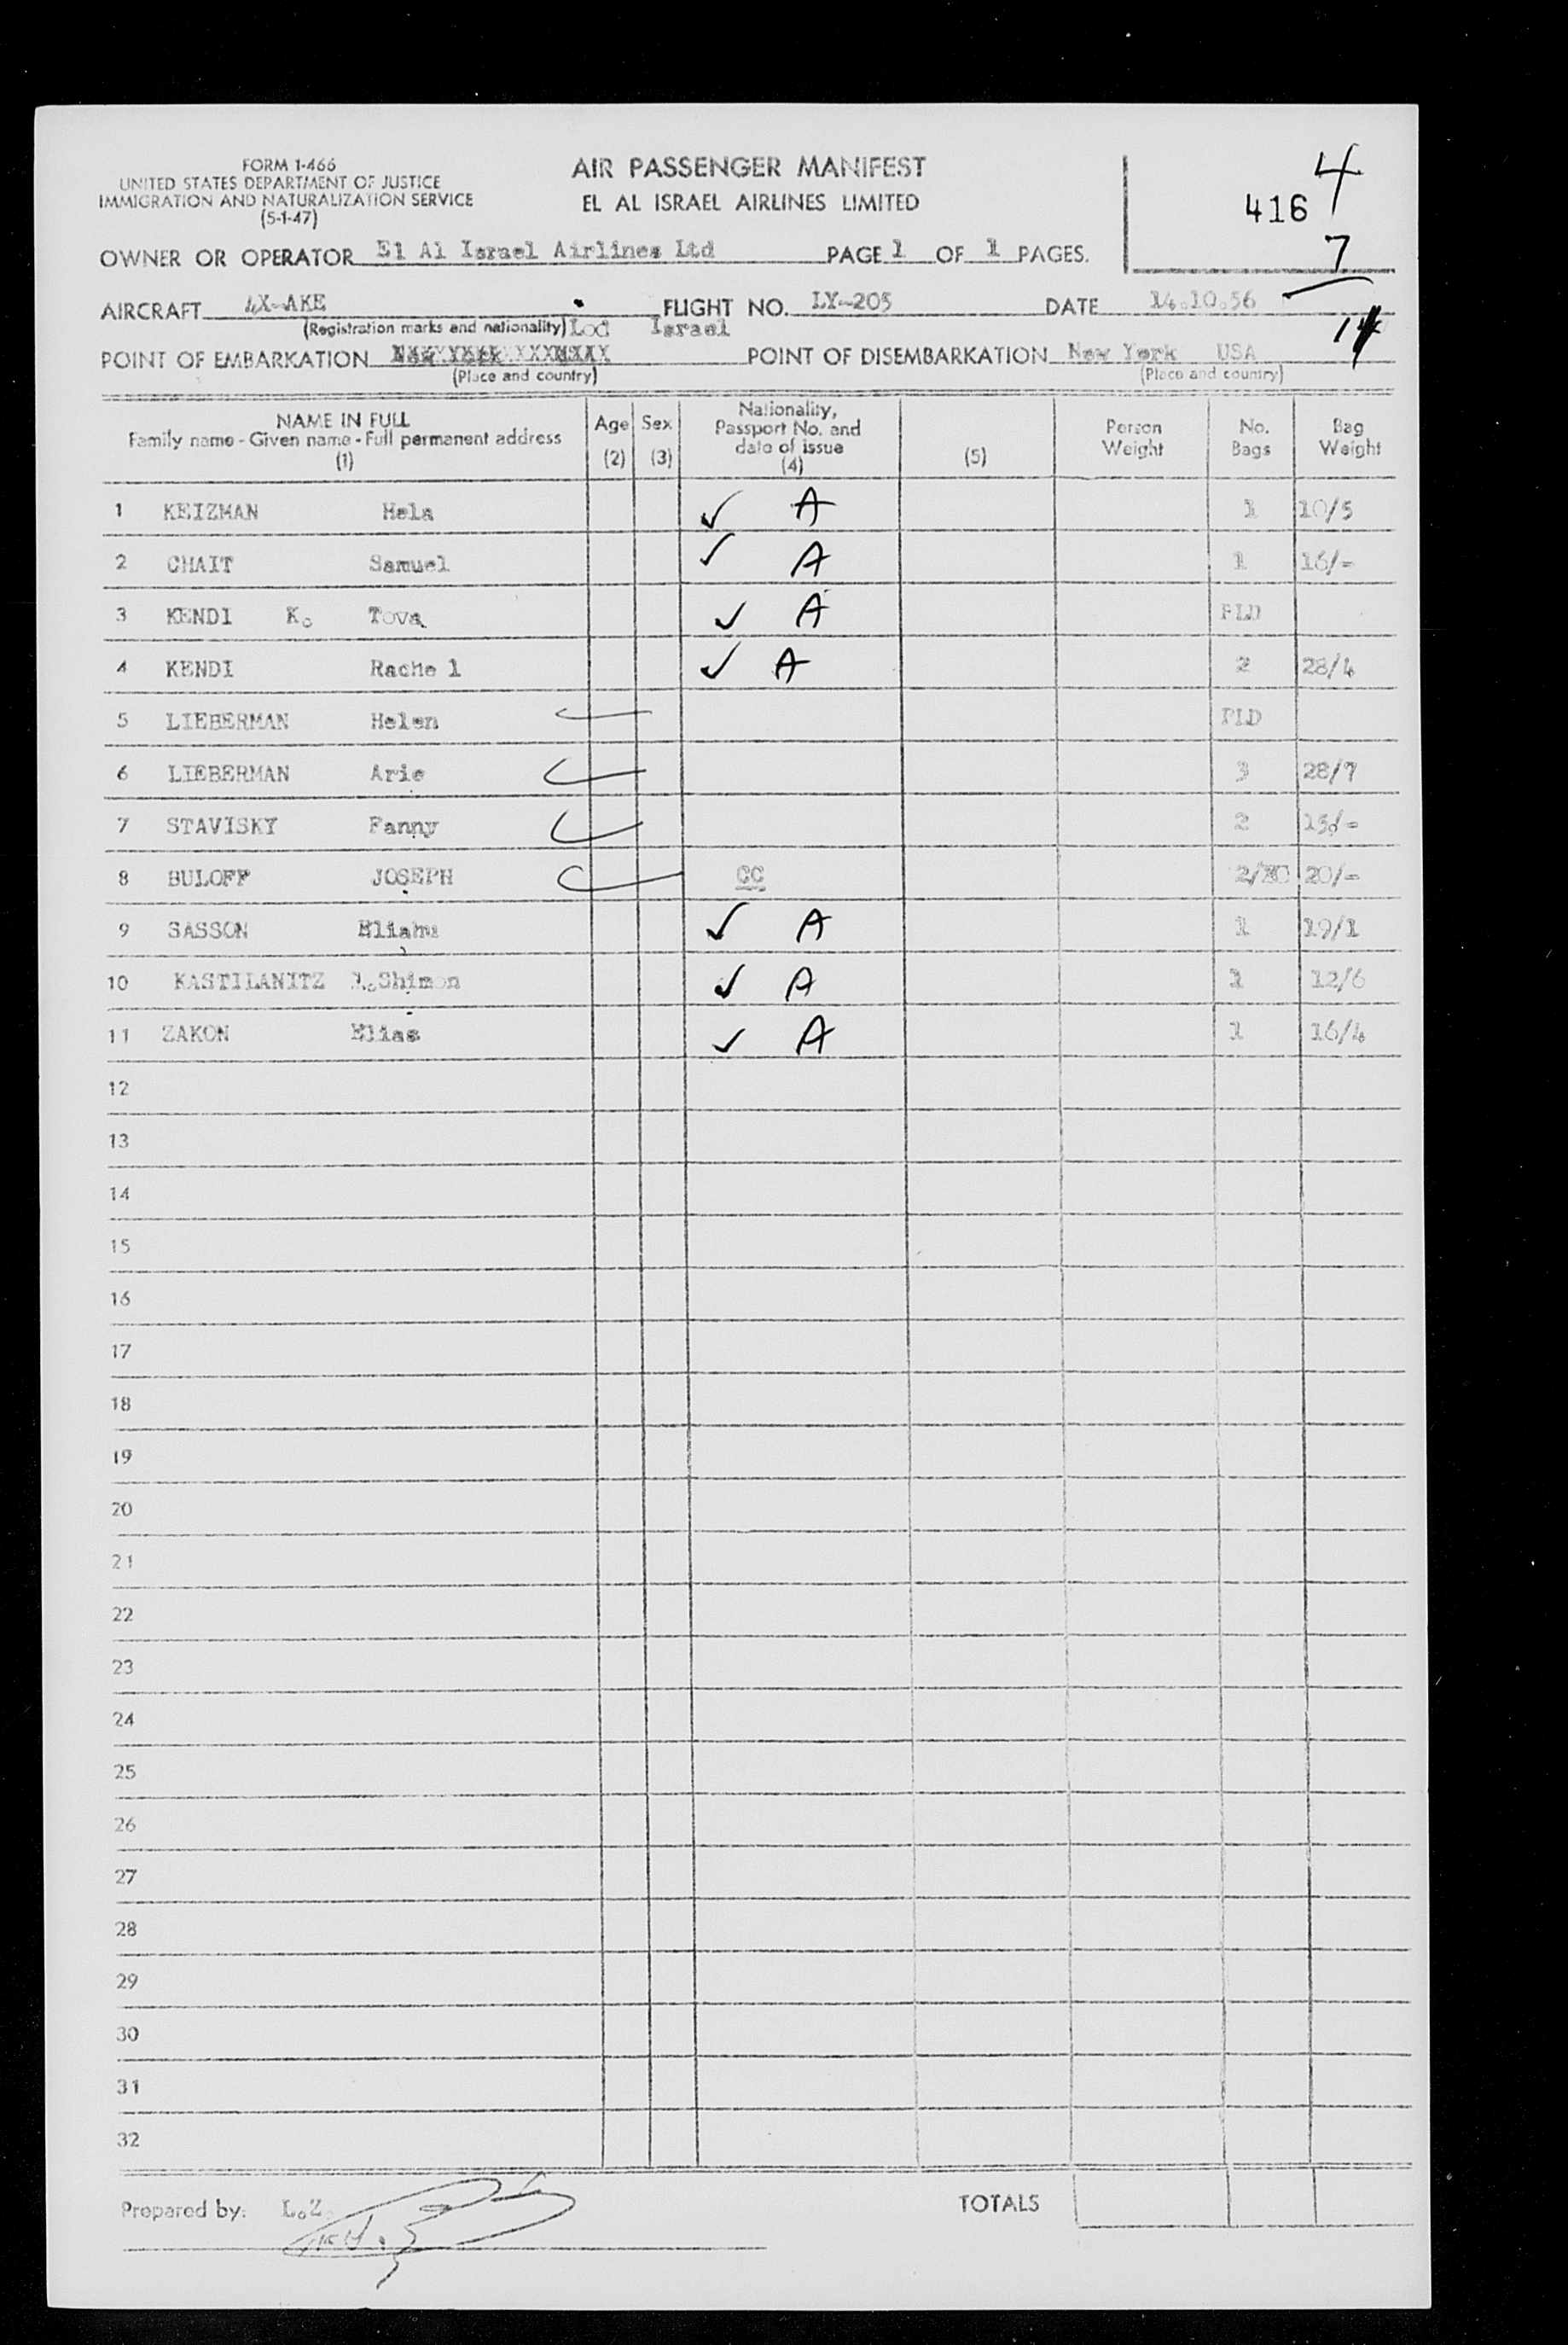 FORM 1-466
UNITED STATES DEPARTMENT OF JUSTICE
IMMIGRATION AND NATURALIZATION SERVICE
(5-1-47)
AIR PASSENGER MANIFEST
EL AL ISRAEL AIRLINES LIMITED
4
416
7
OWNER OR OPERATOR El Al Israel Airlines Ltd PAGE 1 OF 1 PAGES.
AIRCRAFT 4X-AKE FLIGHT NO. LY-205 DATE 14.10.56
(Registration marks and nationality) Lod Israel
POINT OF EMBARKATION New York POINT OF DISEMBARKATION New York USA
(Place and country) (Place and country)
NAME IN FULL
Family name - Given name - Full permanent address
(1)
Age
(2)
Sex
(3)
Nationality,
Passport No. and
date of issue
(4)
(5)
Person
Weight
No.
Bags
Bag
Weight
1 KEIZMAN Hela ✓ A 1 10/5
2 CHAIT Samuel ✓ A 1 16/-
3 KENDI K. Tova ✓ A PLD
4 KENDI Rache l ✓ A 2 28/4
5 LIEBERMAN Helen PLD
6 LIEBERMAN Arie 3 28/7
7 STAVISKY Fanny 2
8 BULOFF JOSEPH CC 20/-
9 SASSON Eliahu ✓ A 1 19/1
10 KASTILANITZ Shimon ✓ A 1 12/6
11 ZAKON Elias ✓ A 1 16/4
12
13
14
15
16
17
18
19
20
21
22
23
24
25
26
27
28
29
30
31
32
Prepared by: L.Z. TOTALS